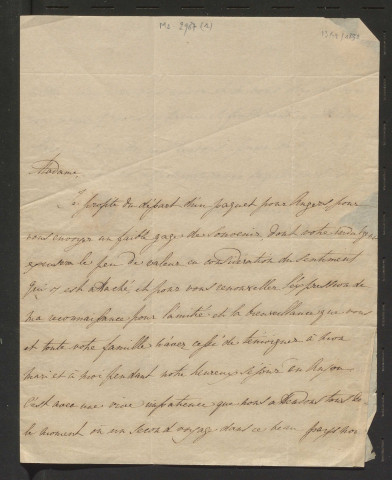 Ms 2967 (4)
Madame
Je profite du départ d'un paquet pour Angers pour
vous envoyer un faible gage de souvenir, dont votre indulgence
excusera le peu de valeur en considération du sentiment
qui y est attaché, et pour vous renouveller l'expression de
ma reconnaissance pour l'amitié et la bienveillance que vous
et toute votre famille n'avez cessé de témoigner à mon
mari et à moi pendant notre heureux séjour en Anjou
C'est avec une vive impatience que nous attendons tous les
le moment où un second voyage dans ce beau pays nous